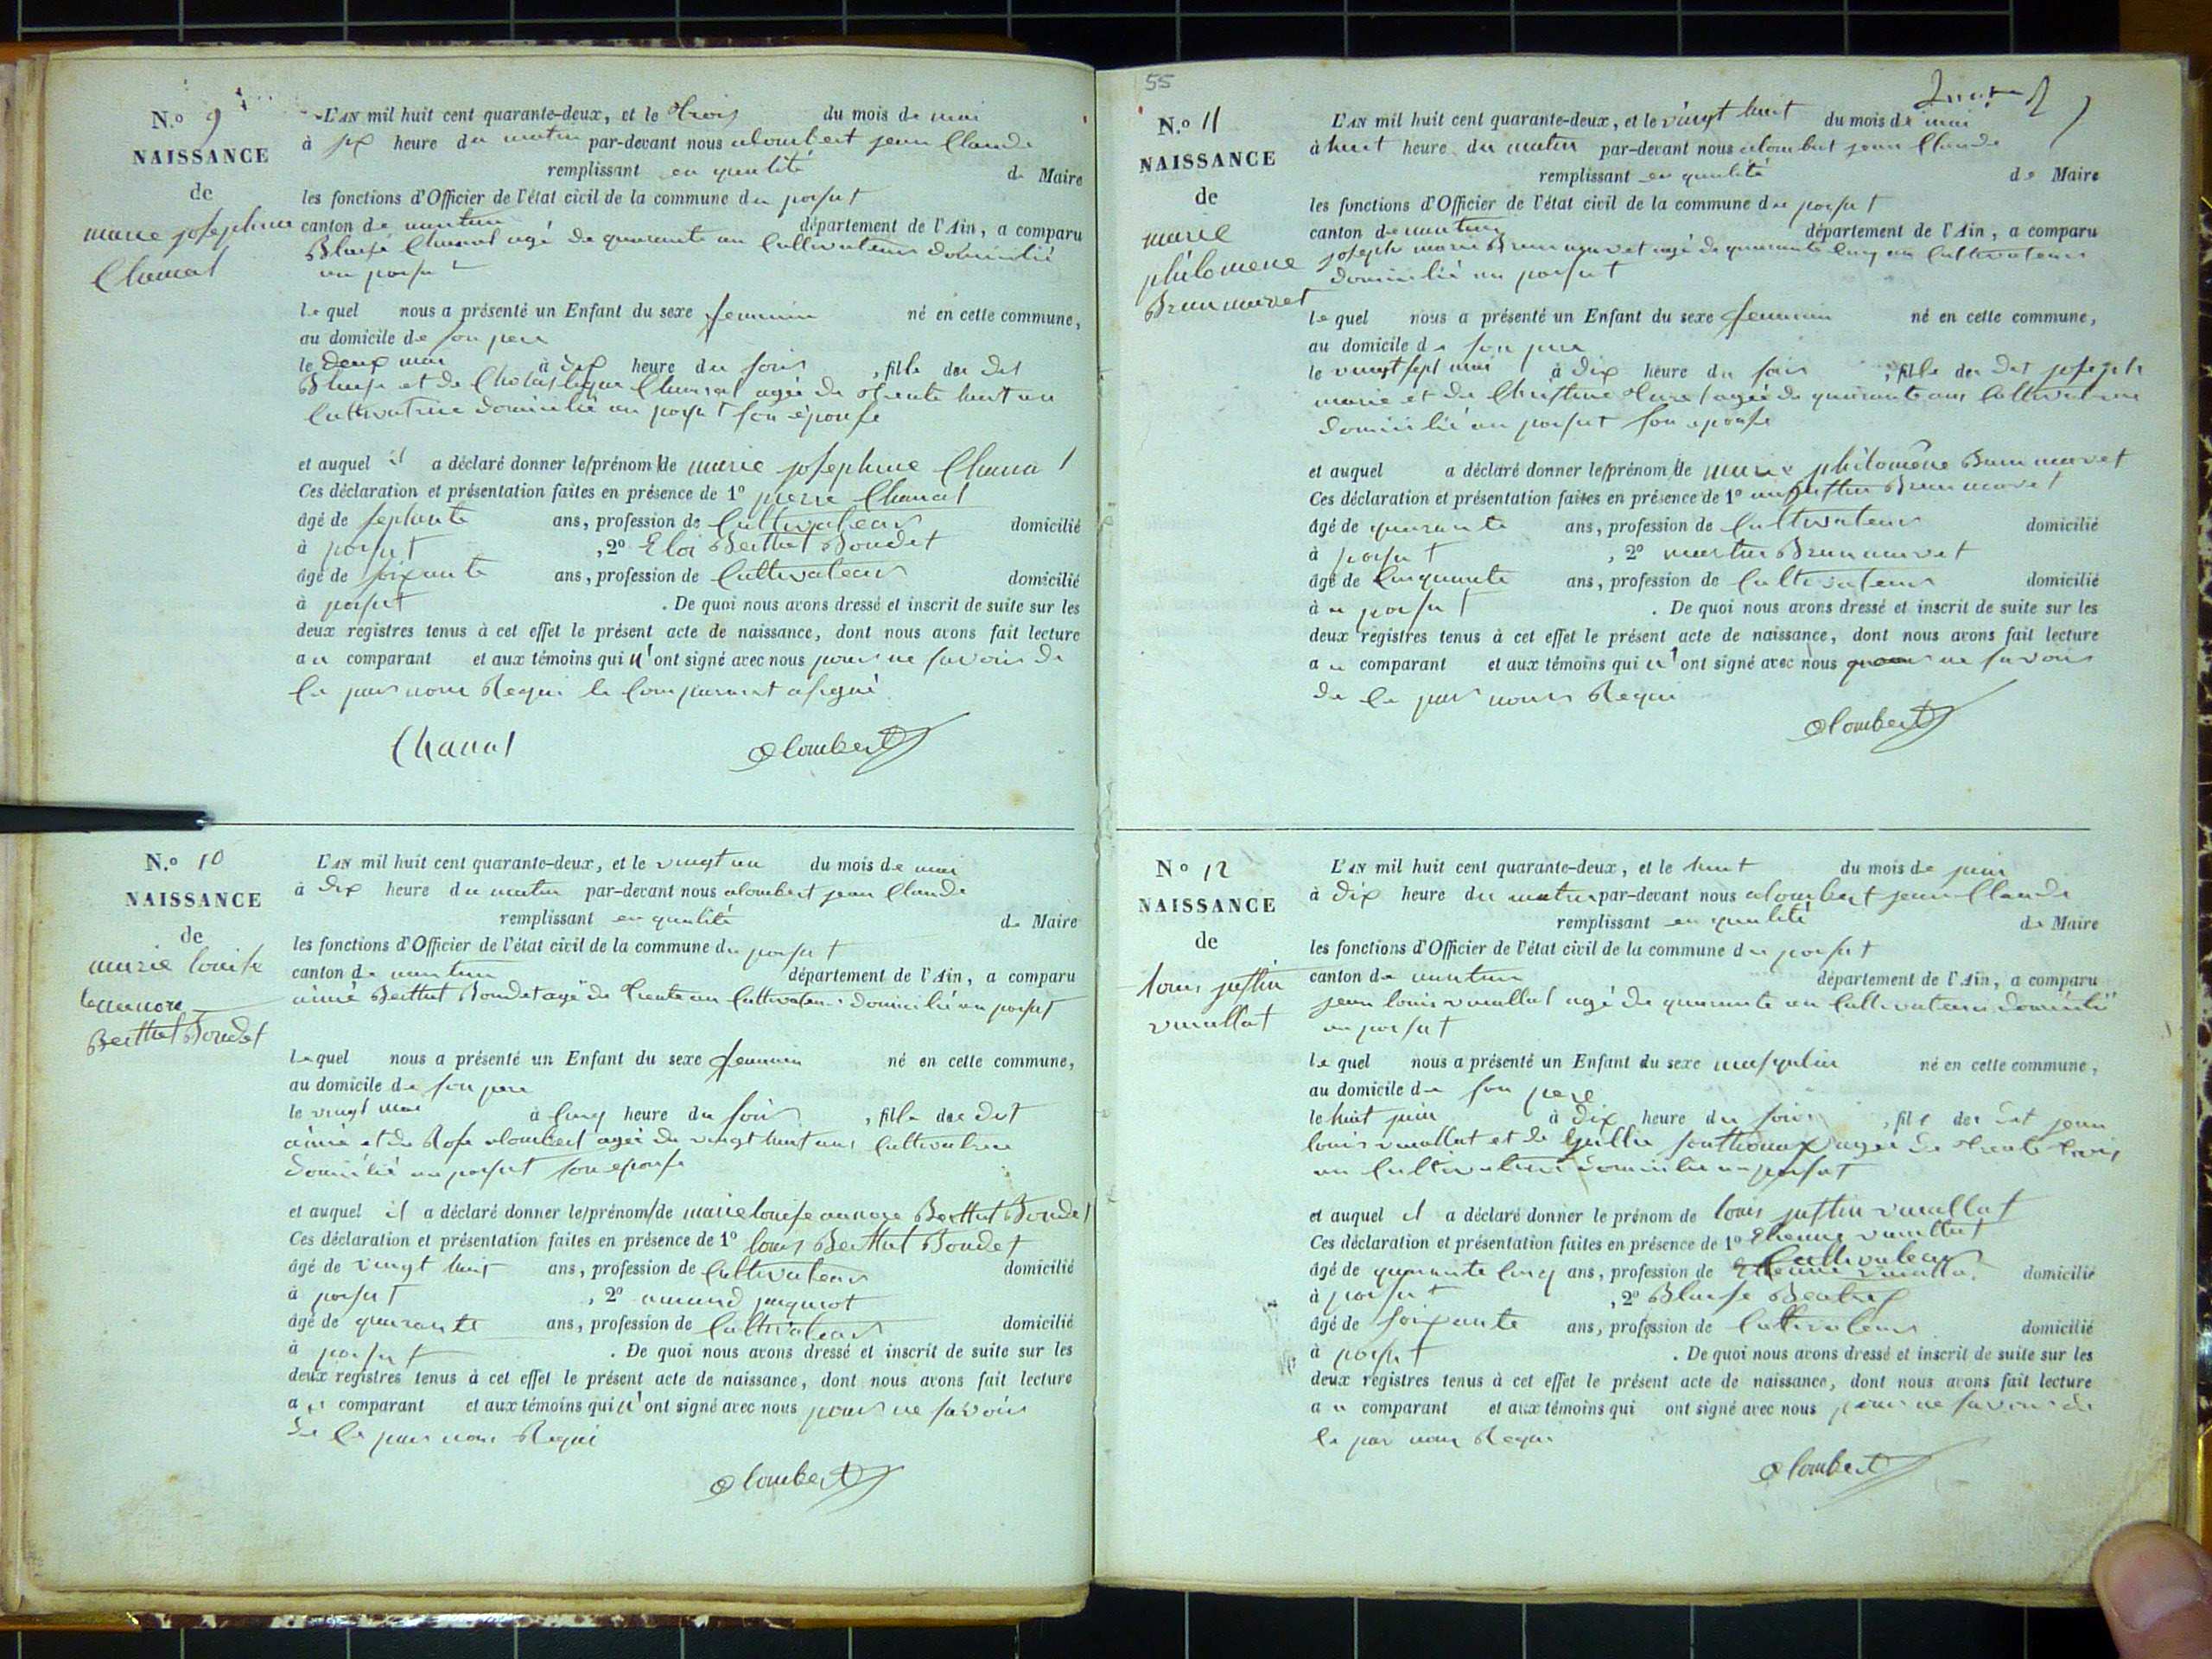 N.o 9
NAISSANCE
de
marie josephine
Chanal
L'AN mil huit cent quarante-deux, et le trois du mois de mai
à six heure du matin par-devant nous alombert jean Claude
remplissant en qualité de Maire
les fonctions d'Officier de l'état civil de la commune du poisat
canton de nantua département de l'Ain, a comparu
Blaise Chanal agé de quarante an Cultivateur domicilié
au poisat
le quel nous a présenté un Enfant du sexe feminin né en cette commune,
au domicile de son pere
le deux mai à dix heure du soir, fille de dit
Blaise et de Cholastique Chanal agée de trente huit an
Cultivatrice domicilié au poisat son épouse
et auquel il a déclaré donner le prénom de marie josephine Chanal
Ces déclaration et présentation faites en présence de 1º pierre Chanal
âgé de septante ans, profession de Cultivateur domicilié
à poisat, 2º Eloi Berthet Bondet
âgé de soixante ans, profession de Cultivateur domicilié
à poisat. De quoi nous avons dressé et inscrit de suite sur les
deux registres tenus à cet effet le présent acte de naissance, dont nous avons fait lecture
au comparant et aux témoins qui n'ont signé avec nous pour ne savoir de
Ce par nous Requi le Comparant a signé
Chanal alombert
N.o 10
NAISSANCE
de
marie louise
Berthet Bondet
L'AN mil huit cent quarante-deux, et le vingt un du mois de mai
à dix heure du matin par-devant nous alombert jean Claude
remplissant en qualité de Maire
les fonctions d'Officier de l'état civil de la commune du poisat
canton de nantua département de l'Ain, a comparu
aimé Berthet Bondet agé de trente an Cultivateur domicilié au poisat
le quel nous a présenté un Enfant du sexe feminin né en cette commune,
au domicile de son pere
le vingt mai à Cinq heure du soir, fille de dit
aimé et de Rose alombert agée de vingt huit ans Cultivatrice
domicilié au poisat son epouse
et auquel il a déclaré donner le prénom de marie louise aurore Berthet Bondet
Ces déclaration et présentation faites en présence de 1º louis Berthet Bondet
âgé de vingt huit ans, profession de Cultivateur domicilié
à poisat, 2º amand jaquiot
âgé de quarante ans, profession de Cultivateur domicilié
à poisat. De quoi nous avons dressé et inscrit de suite sur les
deux registres tenus à cet effet le présent acte de naissance, dont nous avons fait lecture
au comparant et aux témoins qui n'ont signé avec nous pour ne savoir
de Ce par nous Requi
alombert
55
N.o 11
NAISSANCE
de
marie
philomene
Brunmuret
L'AN mil huit cent quarante-deux, et le vingt huit du mois de mai
à huit heure du matin par-devant nous alombert jean Claude
remplissant en qualité de Maire
les fonctions d'Officier de l'état civil de la commune du poisat
canton de nantua département de l'Ain, a comparu
joseph marie Brunmuret agé de quarante Cinq an Cultivateur
domicilié au poisat
le quel nous a présenté un Enfant du sexe feminin né en cette commune,
au domicile de son pere
le vingt sept mai à dix heure du soir, fille de dit joseph
marie et de Christine agée de quarante ans Cultivatrice
domicilié au poisat son epouse
et auquel a déclaré donner le prénom de marie philomène Brunmuret
Ces déclaration et présentation faites en présence de 1º Brunmuret
âgé de quarante ans, profession de Cultivateur domicilié
à poisat, 2º martin Brunmuret
âgé de Cinquante ans, profession de Cultivateur domicilié
à au poisat. De quoi nous avons dressé et inscrit de suite sur les
deux registres tenus à cet effet le présent acte de naissance, dont nous avons fait lecture
au comparant et aux témoins qui n'ont signé avec nous pour ne savoir
de Ce par nous Requi
alombert
No 12
NAISSANCE
de
louis justin
vuaillat
L'AN mil huit cent quarante-deux, et le huit du mois de juin
à dix heure du matin par-devant nous alombert jean Claude
remplissant en qualité de Maire
les fonctions d'Officier de l'état civil de la commune du poisat
canton de nantua département de l'Ain, a comparu
jean louis vuaillat agé de quarante an Cultivateur domicilié
au poisat
le quel nous a présenté un Enfant du sexe masqulin né en cette commune,
au domicile de son pere
le huit juin à dix heure du soir, fils de dit jean
louis vuaillat et de julie agée de trente trois
an Cultivatrice domicilie au poisat
et auquel il a déclaré donner le prénom de louis justin vuaillat
Ces déclaration et présentation faites en présence de 1º Etienne vuaillat
Cultivateur
âgé de quarante Cinq ans, profession de Etienne vuaillat domicilié
à poisat, 2º Blaise Beatrix
âgé de soixante ans, profession de Cultivateur domicilié
à poisat. De quoi nous avons dressé et inscrit de suite sur les
deux registres tenus à cet effet le présent acte de naissance, dont nous avons fait lecture
au comparant et aux témoins qui ont signé avec nous pour ne savoir de
Ce par nous Requi
alombert